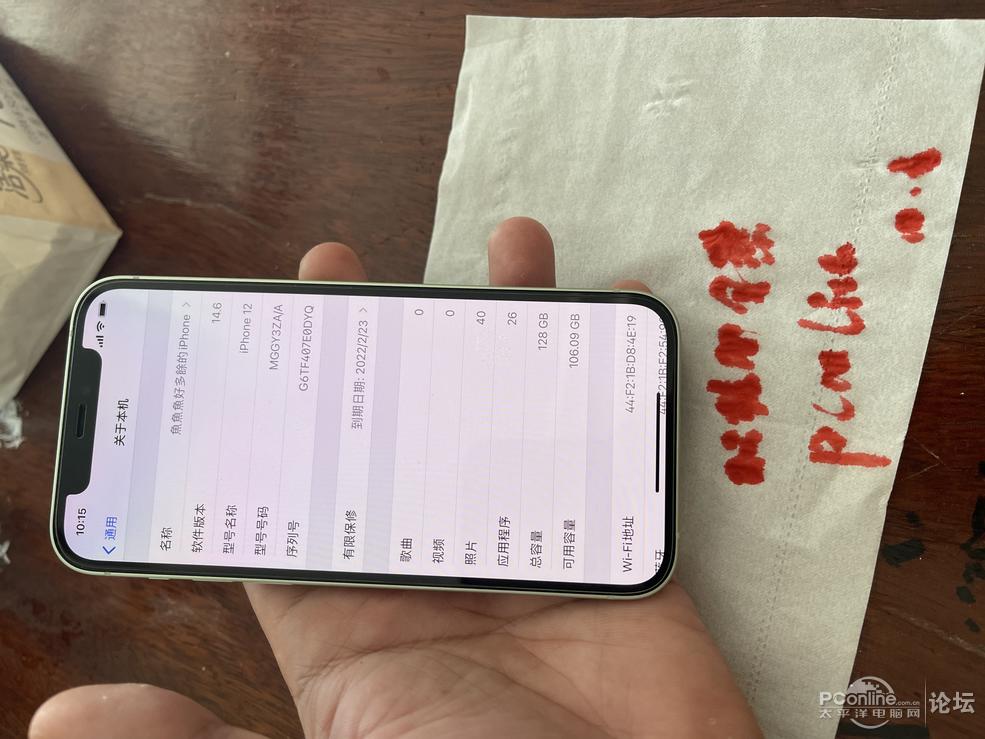 10:15
通用
关于本机
名称 魚魚魚好多餘的 iPhone
软件版本 14.6
型号名称 iPhone 12
型号号码 MGGY3ZA/A
序列号 G6TF407E0DYQ
有限保修 到期日期: 2022/2/23
歌曲 0
视频 0
照片 40
应用程序 26
总容量 128 GB
可用容量 106.09 GB
Wi-Fi地址 44:F2:1B:D8:4E:19
蓝牙
PConline.com.cn
太平洋电脑网
论坛